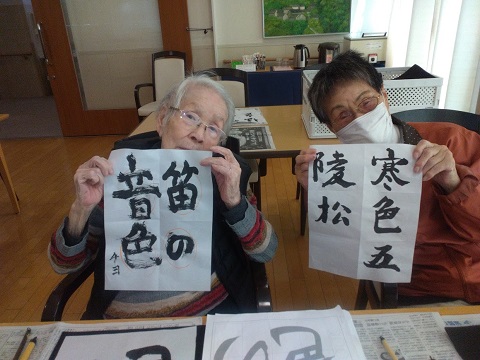 笛の
音色
寒色五
陵松